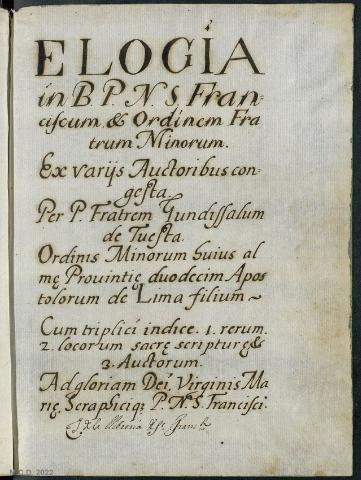 ELOGIA
in B. P. N. S Fran-
ciscum. & Ordinem Fra
trum Minorum.
Ex varijs Auctoribus con-
gesta.
Per P. Fratrem Gundissalum
de Tuesta.
Ordinis Minorum huius al
mę Prouintię duodecim Apos
tolorum de Lima filium ~
Cum triplici indice. 1. rerum.
2. locorum sacrę scripturę &
3. Auctorum.
Ad gloriam Dei, Virginis Ma
rię, Seraphiciq; P. N. S. Francisci.
de la
M.C.D. 2022